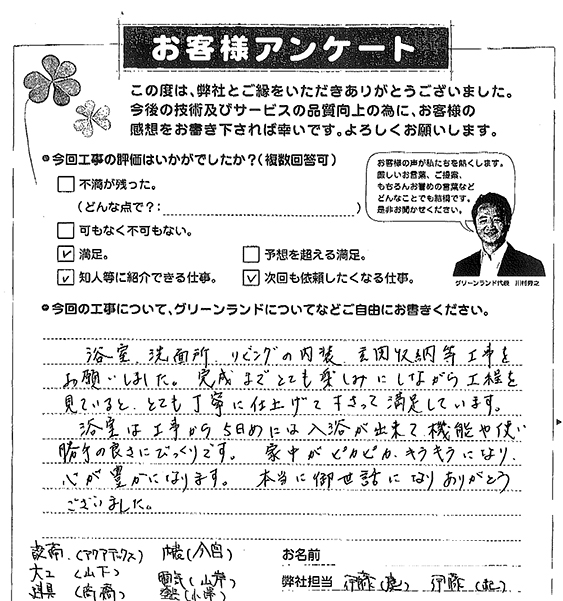 お客様アンケート
この度は、弊社とご縁をいただきありがとうございました。
今後の技術及びサービスの品質向上の為に、お客様の
感想をお書き下されば幸いです。よろしくお願いします。
今回工事の評価はいかがでしたか？（複数回答可）
不満が残った。
（どんな点で？：　）
可もなく不可もない。
満足。
予想を超える満足。
知人等に紹介できる仕事。
次回も依頼したくなる仕事。
お客様の声が私たちを熱くします。
厳しいお言葉、ご提案、
もちろんお誉めの言葉など
どんなことでも結構です。
是非お聞かせください。
グリーンランド代表 川村
今回の工事について、グリーンランドについてなどご自由にお書きください。
浴室、洗面所、リビングの内装、玄関収納等工事を
お願いしました。完成までとても楽しみにしながら工程を
見ていると、とても丁寧に仕上げて下さって満足しています。
浴室は工事から5日めには入浴が出来て機能や使い
勝手の良さにびっくりです。家中がピカピカ、キラキラになり、
心が豊かになります。本当に御世話になりありがとう
ございました。
設備（アクアテックス）
内装（八白）
お名前
大工（山下）
電気（山岸）
弊社担当 伊藤（　） 伊藤（　）
建具（高橋）